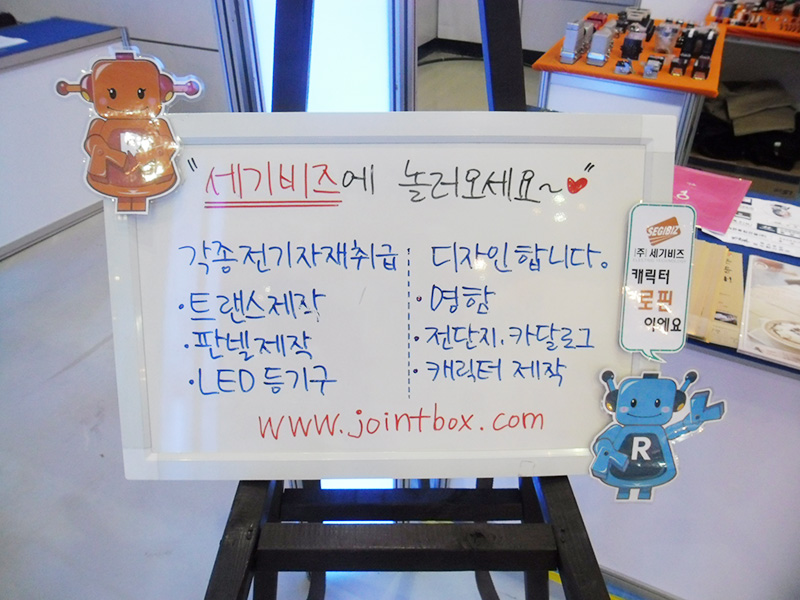 "세기비즈에 놀러오세요~♥"
각종전기자재취급
·트랜스제작
·판넬제작
·LED 등기구
디자인합니다.
·명함
·전단지.카달로그
·캐릭터 제작
www.jointbox.com
SEGIBIZ
(주)세기비즈
캐릭터
로핀
이에요
R